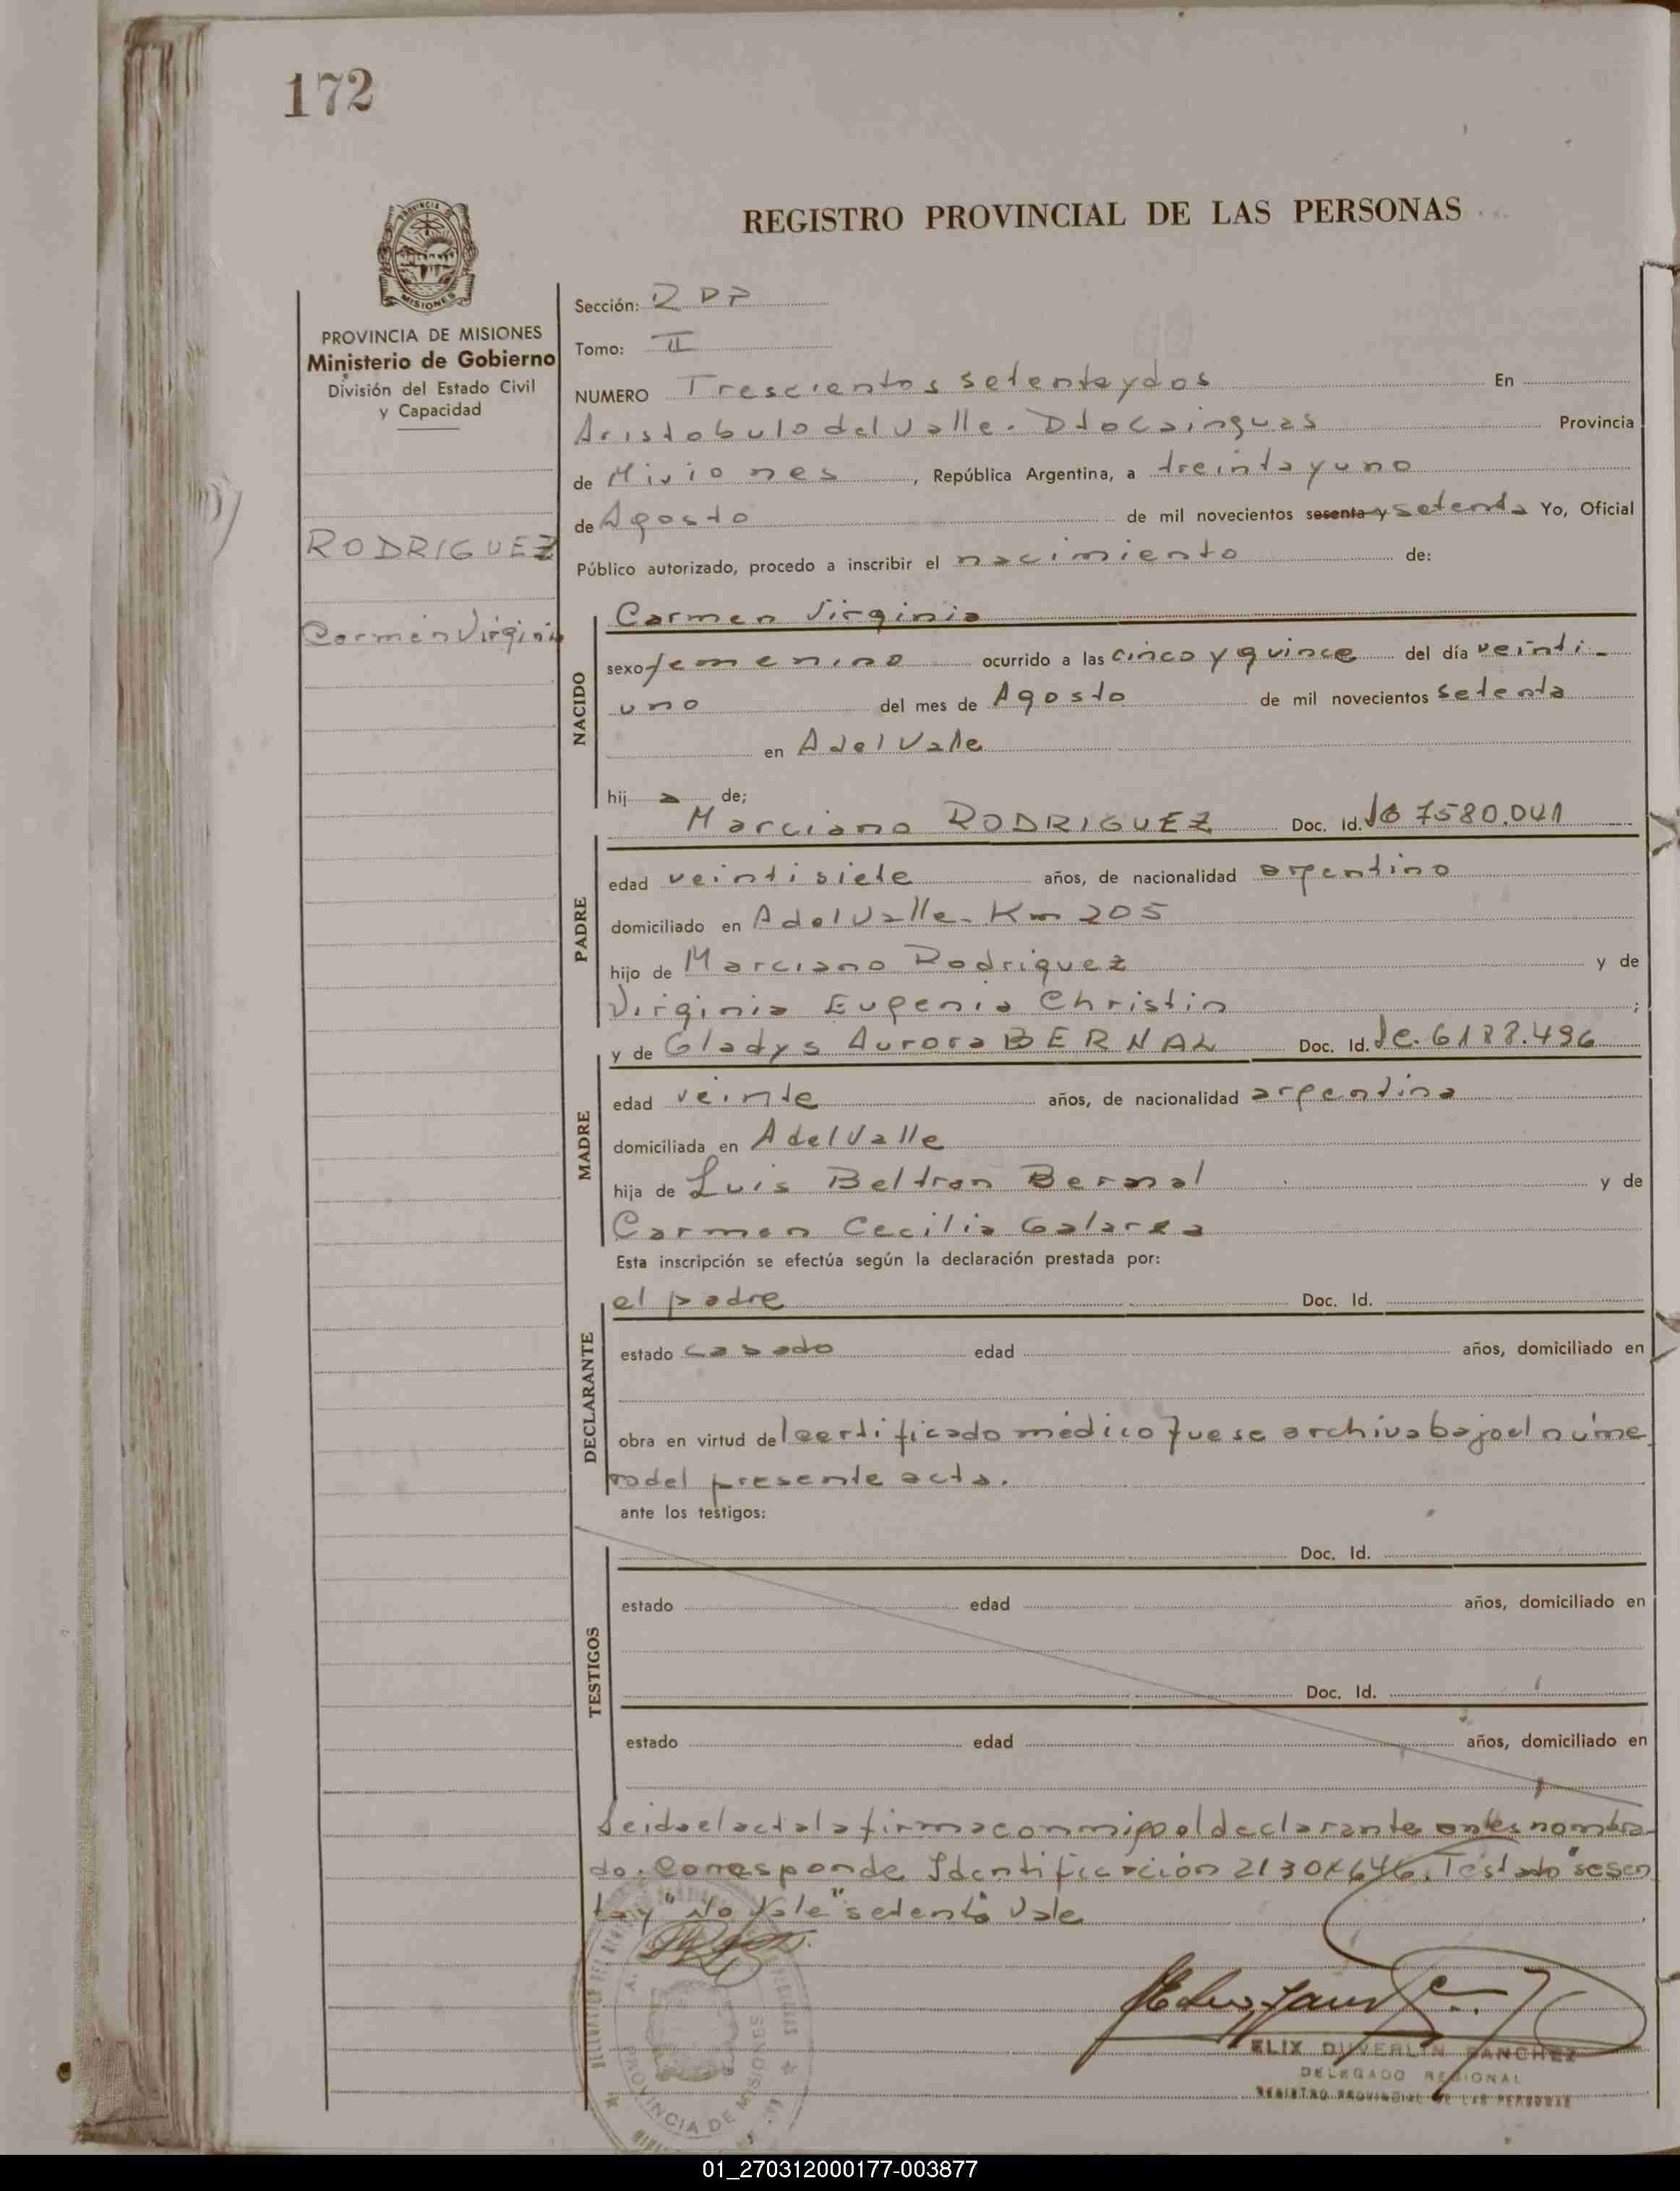 172
REGISTRO PROVINCIAL DE LAS PERSONAS
PROVINCIA DE MISIONES
Ministerio de Gobierno
División del Estado Civil
y Capacidad
RODRIGUEZ
Carmen Virginia
Sección: RDP
Tomo: II
NUMERO Trescientos setenta y dos En
Aristobulo del Valle. Dto Cainguas Provincia
de Misiones, República Argentina, a treinta y uno
de Agosto de mil novecientos sesenta y setenta Yo, Oficial
Público autorizado, procedo a inscribir el nacimiento de:
NACIDO
Carmen Virginia
sexo femenino ocurrido a las cinco y quince del día veinti-
uno del mes de Agosto de mil novecientos setenta
en A del Valle
hij a de;
PADRE
Marciano RODRIGUEZ Doc. Id. 7580.041
edad veintisiete años, de nacionalidad argentino
domiciliado en A del Valle - Km 205
hijo de Marciano Rodriguez y de
Virginia Eugenia Christin;
MADRE
y de Gladys Aurora BERNAL Doc. Id. lc. 6188.496
edad veinte años, de nacionalidad argentina
domiciliada en A del Valle
hija de Luis Beltran Bernal y de
Carmen Cecilia Galarza
Esta inscripción se efectúa según la declaración prestada por:
DECLARANTE
el padre Doc. Id.
estado casado edad años, domiciliado en
obra en virtud del certificado médico que se archiva bajo el núme
ro del presente acta.
ante los testigos:
TESTIGOS
Doc. Id.
estado edad años, domiciliado en
Doc. Id.
estado edad años, domiciliado en
Leida el acta la firma conmigo el declarante antes nombra-
do. Corresponde Identificación Testado "sesen
ta y" No Vale "setenta" Vale
PROVINCIA DE MISIONES
ELIX DUVERLIN SANCHEZ
DELEGADO REGIONAL
REGISTRO PROVINCIAL DE LAS PERSONAS
01_270312000177-003877